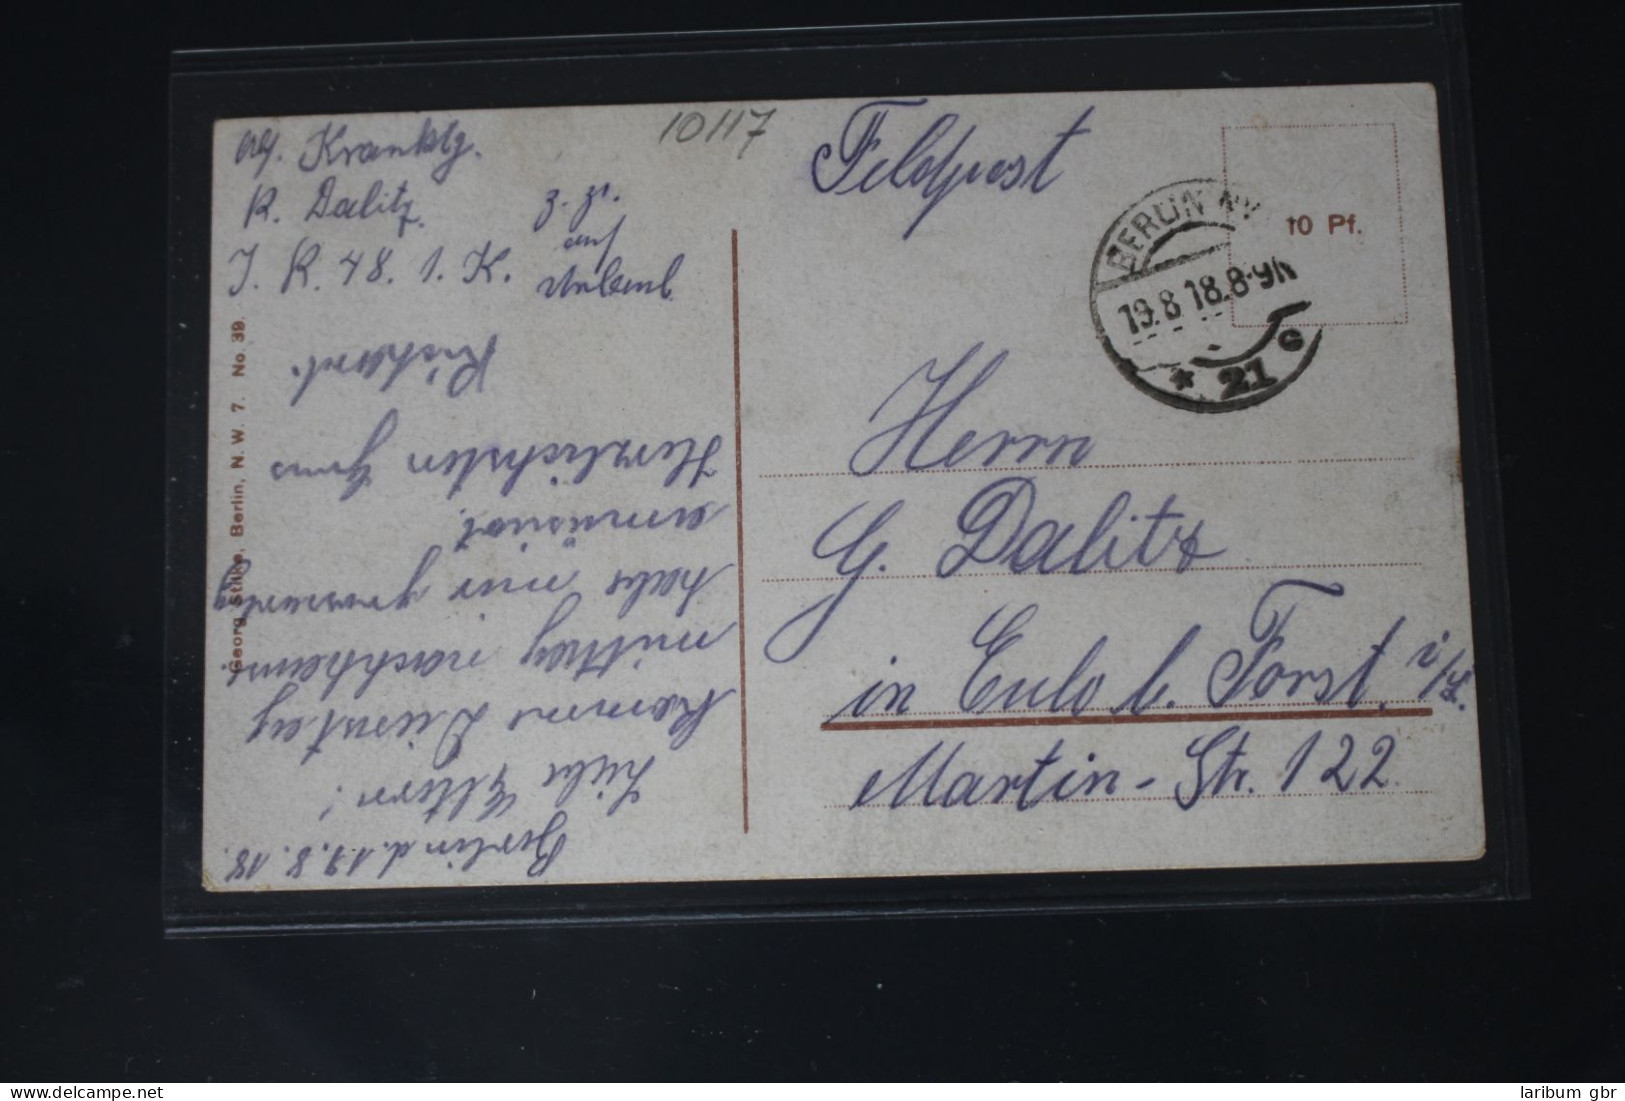 10117
Feldpost
Krankltg.
R. Dalitz.
z. Zt.
auf
J. R. 48. 1. K.
Urlaub
BERLIN N.W
19.8.18.8-9N
* 21 c
10 Pf.
Herrn
G. Dalitz
in Eulo b. Forst. i/L.
Martin-Str. 122.
Georg Stilke, Berlin, N. W. 7. No. 39.
Berlin d. 19.8.18.
Liebe Eltern!
Komme Dienstag
mittag nachhaus.
habe mir grossartig
amüsiert.
Herzlichsten Gruss
Richard.
laribum gbr